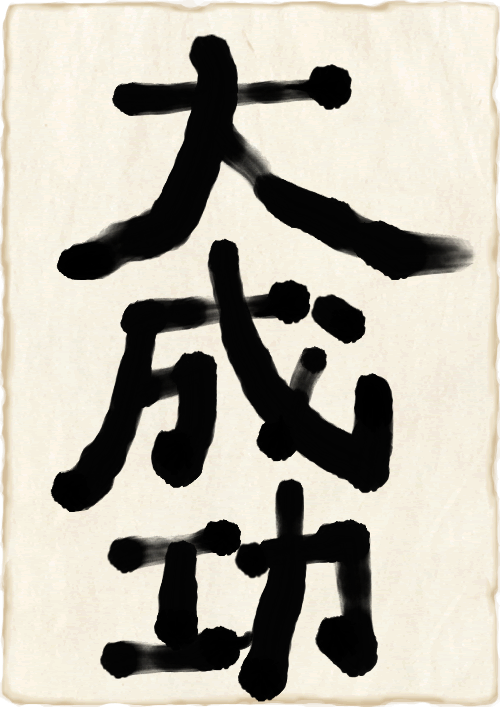 大成功